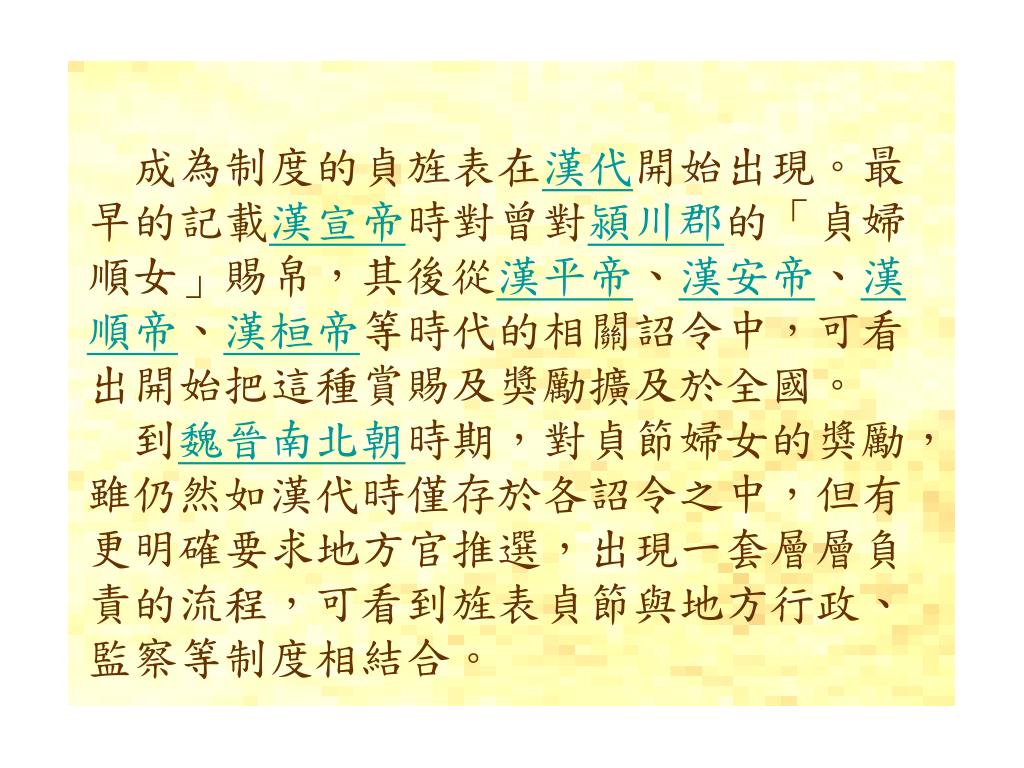 成為制度的貞旌表在漢代開始出現。最
早的記載漢宣帝時對曾對潁川郡的「貞婦
順女」賜帛，其後從漢平帝、漢安帝、漢
順帝、漢桓帝等時代的相關詔令中，可看
出開始把這種賞賜及獎勵擴及於全國。
到魏晉南北朝時期，對貞節婦女的獎勵，
雖仍然如漢代時僅存於各詔令之中，但有
更明確要求地方官推選，出現一套層層負
責的流程，可看到旌表貞節與地方行政、
監察等制度相結合。